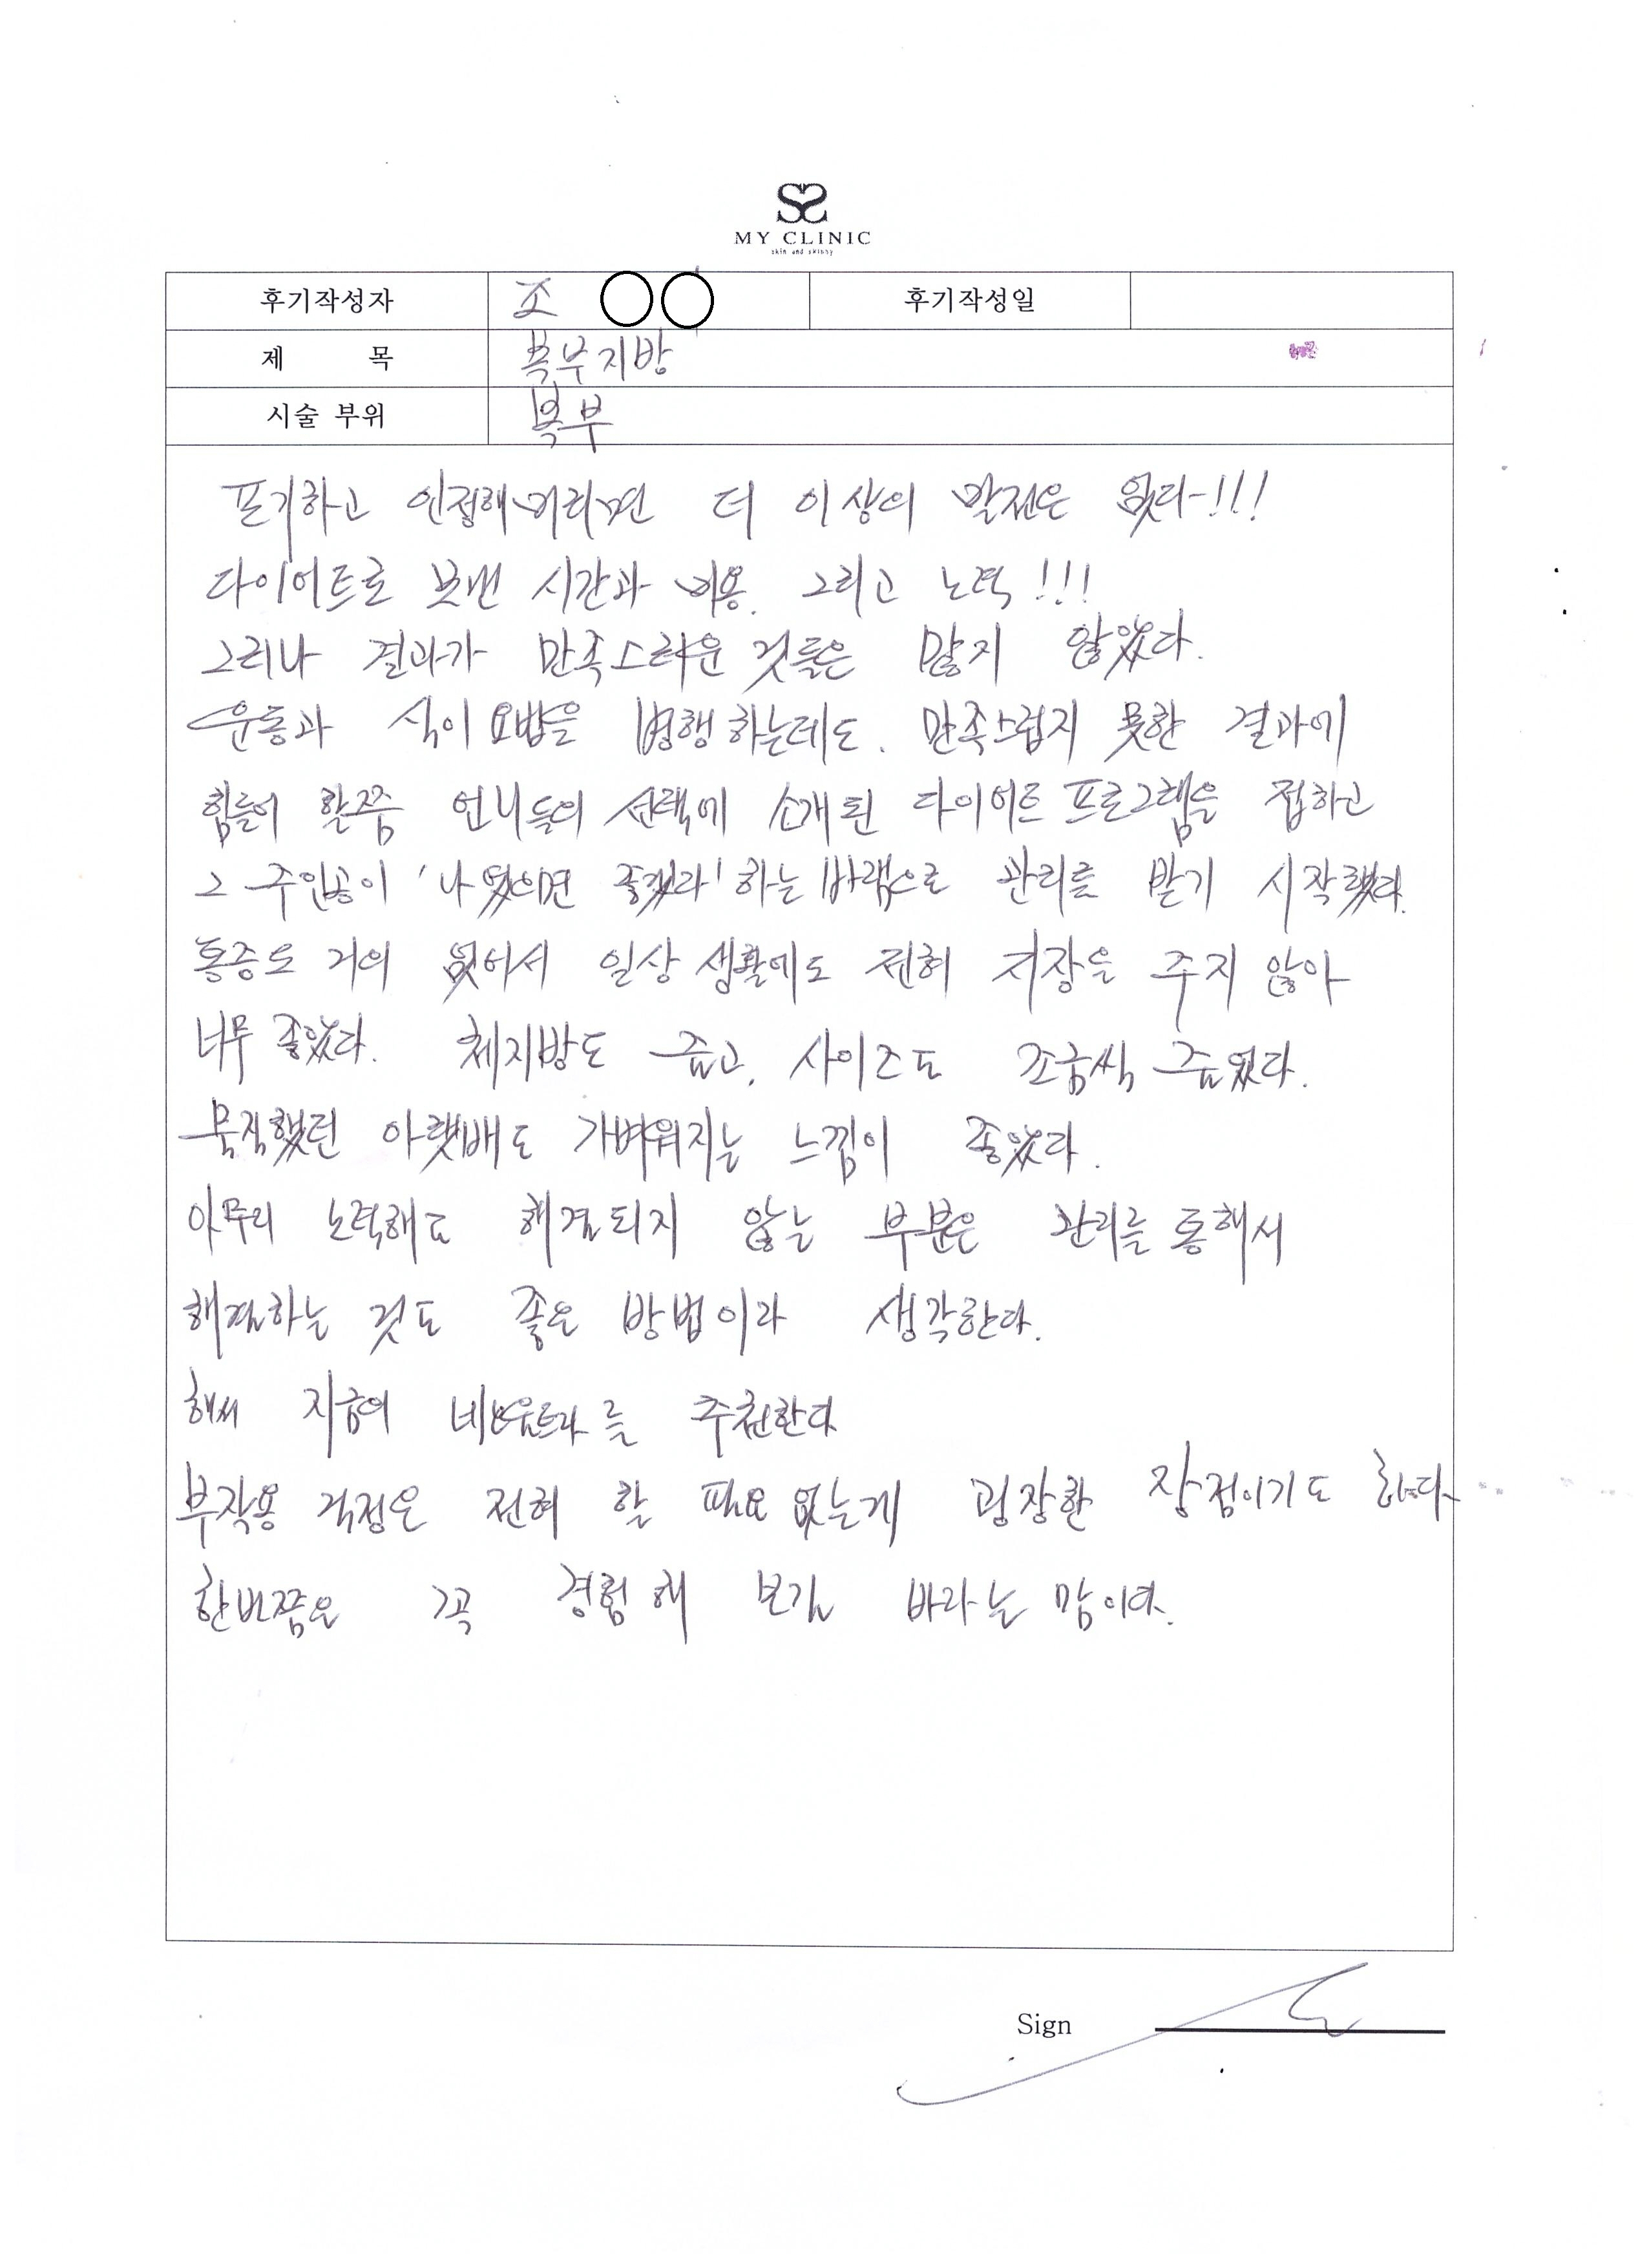 MY CLINIC
skin and skinny
후기작성자 조 ○○ 후기작성일
제 목 복부지방
시술 부위 복부
포기하고 인정해버리면 더 이상의 발전은 없다!!!
다이어트로 보낸 시간과 비용. 그리고 노력!!!
그러나 결과가 만족스러운 것들은 많지 않았다.
운동과 식이요법을 병행하는데도. 만족스럽지 못한 결과에
힘들어 할쯤 언니들의 선택에 소개된 다이어트 프로그램을 접하고
그 주인공이 '나였으면 좋겠다' 하는 바램으로 관리를 받기 시작했다.
통증도 거의 없어서 일상생활에도 전혀 지장을 주지 않아
너무 좋았다. 체지방도 줄고, 사이즈도 조금씩 줄었다.
묵직했던 아랫배도 가벼워지는 느낌이 좋았다.
아무리 노력해도 해결되지 않는 부분은 관리를 통해서
해결하는 것도 좋은 방법이라 생각한다.
해서 지금의 를 추천한다
부작용 걱정은 전혀 할 필요 없는게 굉장한 장점이기도 하다
한번쯤은 꼭 경험해 보길 바라는 맘이다.
Sign